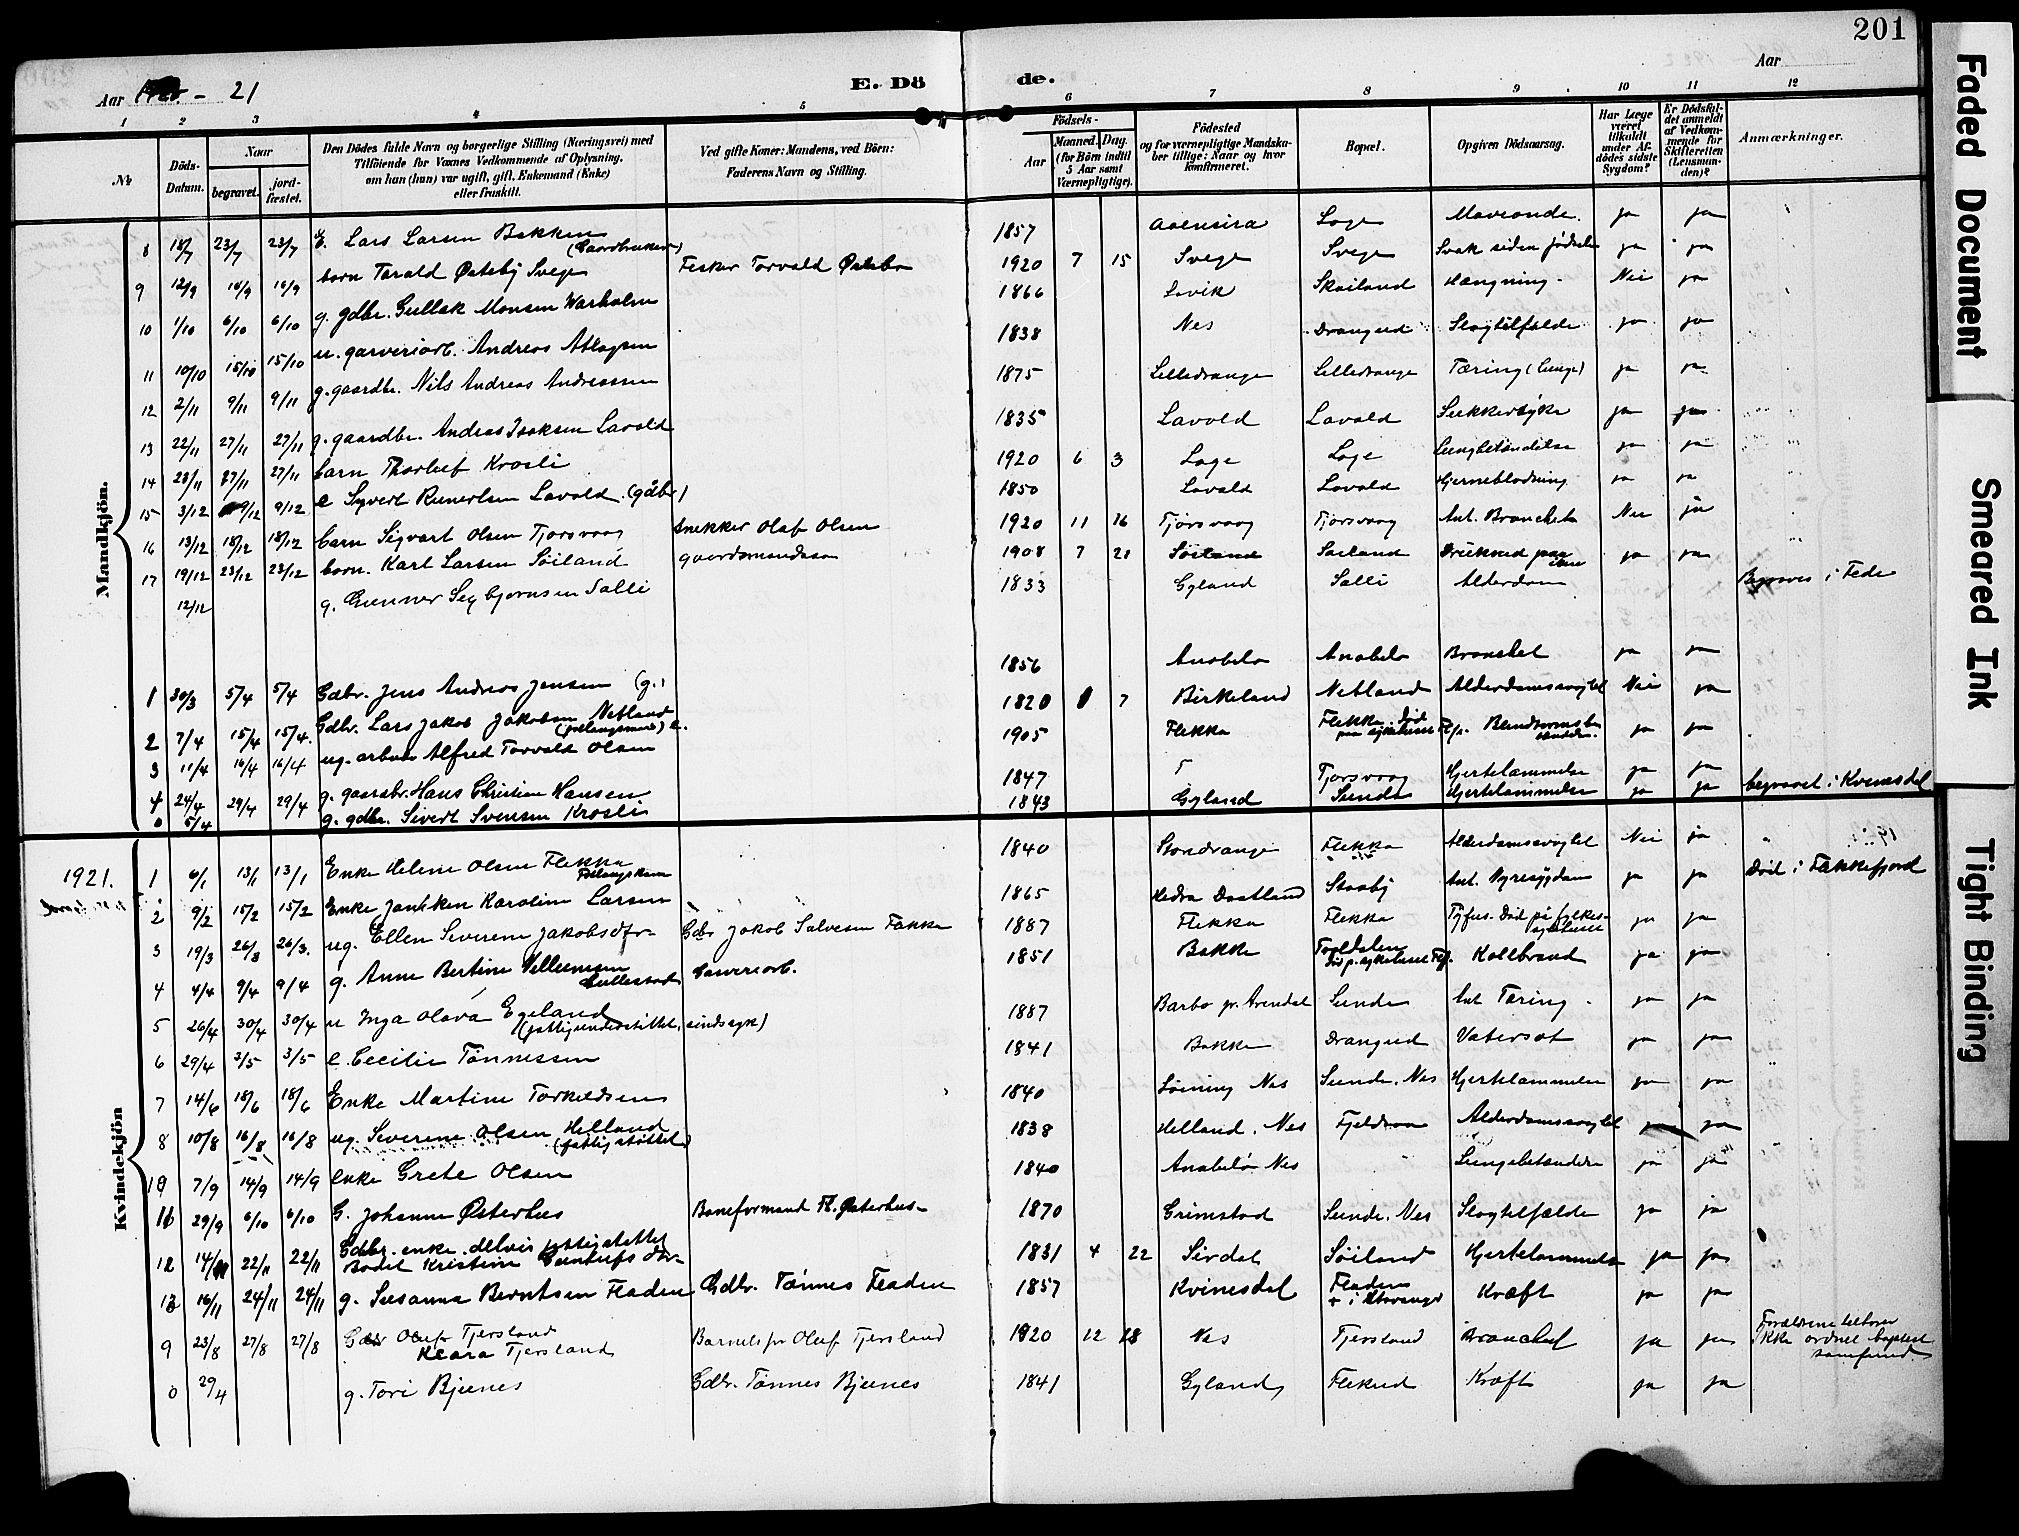 201
Aar 1920 - 21
E. Dö de.
Aar
1 2 3 4 5 6 7 8 9 10 11 12
№
Döds-Datum.
Naar
begravet.
jord-fæstet.
Den Dödes fulde Navn og borgerlige Stilling (Næringsvei) med
Tilföiende for Voxnes Vedkommende af Oplysning,
om han (hun) var ugift, gift, Enkemand (Enke)
eller fraskilt.
Ved gifte Koner: Mandens, ved Börn:
Faderens Navn og Stilling.
Födsels-
Aar
Maaned. Dag.
(for Börn indtil
5 Aar samt
Værnepligtige).
Födested
og for værnepligtige Mandska-
ber tillige: Naar og hvor
konfirmeret.
Bopæl.
Opgiven Dödsaarsag.
Har Læge
været
tilkaldt
under Af-
dödes sidste
Sygdom?
Er Dödsfal-
det anmeldt
af Vedkom-
mende for
Skifteretten
(Lensman-
den)?
Anmærkninger.
Mandkjön.
8 18/7 23/7 23/7 E. Lars Larsen Bakken (Gaardbruker) 1857 Aaensira Loge ja ja
9 12/9 16/9 16/9 barn Torald Østebø Svege Fisker Torvald Østebø 1920 7 15 Svege Svege Svak siden fødselen ja ja
10 1/10 6/10 6/10 g. gdbr. Gullak Monsen Warholm 1866 Lavik Skailand Hængning Nei ja
11 10/10 15/10 15/10 u. garveriarb. Andreas Atlagsen 1838 Nes Drangeid Slagtilfælde ja ja
12 2/11 9/11 9/11 g. gaardbr. Nils Andreas Andreassen 1875 Lilledrange Lilledrange Tæring (lunge) ja ja
13 22/11 27/11 27/11 g. gaardbr. Andreas Isaksen Lavold 1835 Lavold Lavold Sukkersyke ja ja
14 23/11 27/11 27/11 barn Thorleif Krosli 1920 6 3 Loge Loge Lungebetændelse ja ja
15 3/12 9/12 9/12 e Syvert Reinertsen Lavold (gdbr) 1850 Lavold Lavold Hjerneblødning ja ja
16 13/12 18/12 18/12 barn Sigvart Olsen Tjorsvaag Snekker Olaf Olsen 1920 11 16 Tjorsvaag Tjorsvaag Ant. Bronchit Nei ja
17 19/12 23/12 23/12 barn. Karl Larsen Søiland gaardmandssøn 1908 7 21 Søiland Søiland Druknet paa isen ja ja
12/12 g. Gunner Sigbjørnsen Salli 1833 Gyland Salli Alderdom Begraves i Feda
1 30/3 5/4 5/4 Gdbr. Jens Andreas Jensen (g.) 1856 Anabelø Anabelø Bronchit ja ja
2 7/4 15/4 15/4. Gdbr. Lars Jakob Jakobsen Netland e. 1820 7 Birkeland Netland Alderdomssvaghet Nei ja
3 11/4 16/4 16/4 ug. arbeider Alfred Torvald Olsen 1905 Flekka Flekka Død paa sykehuset Flf. Blindtarmsbetændelse. ja ja
4 24/4 29/4 29/4 g. gaardbr. Hans Christian Hansen 1847 Tjorsvaag Hjertelammelse ja ja
0 5/4 g. gdbr. Sivert Svensen Krosli 1843 Gyland Sunde Hjertelammelse ja ja begravet i Kvinesdal
Kvindekjön
1921.
1 6/1 13/1 13/1 Enke Helene Olsen Flekka 1840 Stordrange Flekka Alderdomssvaghet Nei ja
2 9/2 15/2 15/2 Enke Janikken Karoline Larsen 1865 Hedra Daatland Staaby Ant. Nyresygdom ja ja Død i Flekkefjord
3 19/3 26/3 26/3. ug. Ellen Severine Jakobsdtr Gdbr Jakob Salvesen Flikka 1887 Flekka Flekka Tyfus. Død på fylkessykehuset ja ja
4 4/4 9/4 9/4 g. Anne Bertine Villumsen Gullestad Garveriarb. 1851 Bakke Død p. sykehuset Flf. Koldbrand ja ja
5 26/4 30/4 30/4 u Inga Olava Egeland (fattigunderstøttet, sindssyk) 1887 Barbo pr. Arendal Sunde Ant Tæring ja ja
6 29/4 3/5 3/5 e. Cecilie Tønnessen 1841 Bakke Drangeid Vatersot ja ja
7 14/6 18/6 18/6 Enke Martine Torkildsen 1840 Løining Nes Sunde. Nes Hjertelammelse ja ja
8 10/8 16/8 16/8 ug. Severine Olsen Helland (fattigstøttet) 1838 Helland. Nes Fjeldraa Alderdomssvaghet ja ja
10 7/9 14/9 14/9 enke Grete Olsen 1840 Anabelø Nes Lungebetændelse ja ja
11 29/9 6/10 6/10 G. Johanne Østerhus Baneformand Fl. Østerhus 1870 Grimstad Sunde. Nes Slagtilfælde ja ja
12 14/11 22/11 22/11 Gdbr. enke. delvis fattigstøttet Bodil Kristine Gunlufsdtr 1831 4 22 Sirdal Søiland Hjertelammelse ja ja
13 16/11 24/11 24/11 g. Susanna Berntsen Fladen Gdbr. Tønnes Fladen 1857 Kvinesdal Fladen + i Stavanger Kræft ja ja
9 23/8 27/8 27/8 Gdbr Oluf Tjersland Klara Tjersland Barnets fr Oluf Tjersland 1920 12 28 Nes Tjersland Bronchit ja ja Forældrene tilhører ikke ordnet baptistsamfund.
0 29/4 g. Tori Bjunes Gdbr. Tønnes Bjunes 1841 Gyland Flikeid Kræft ja ja
Faded Document
Smeared Ink
Tight Binding